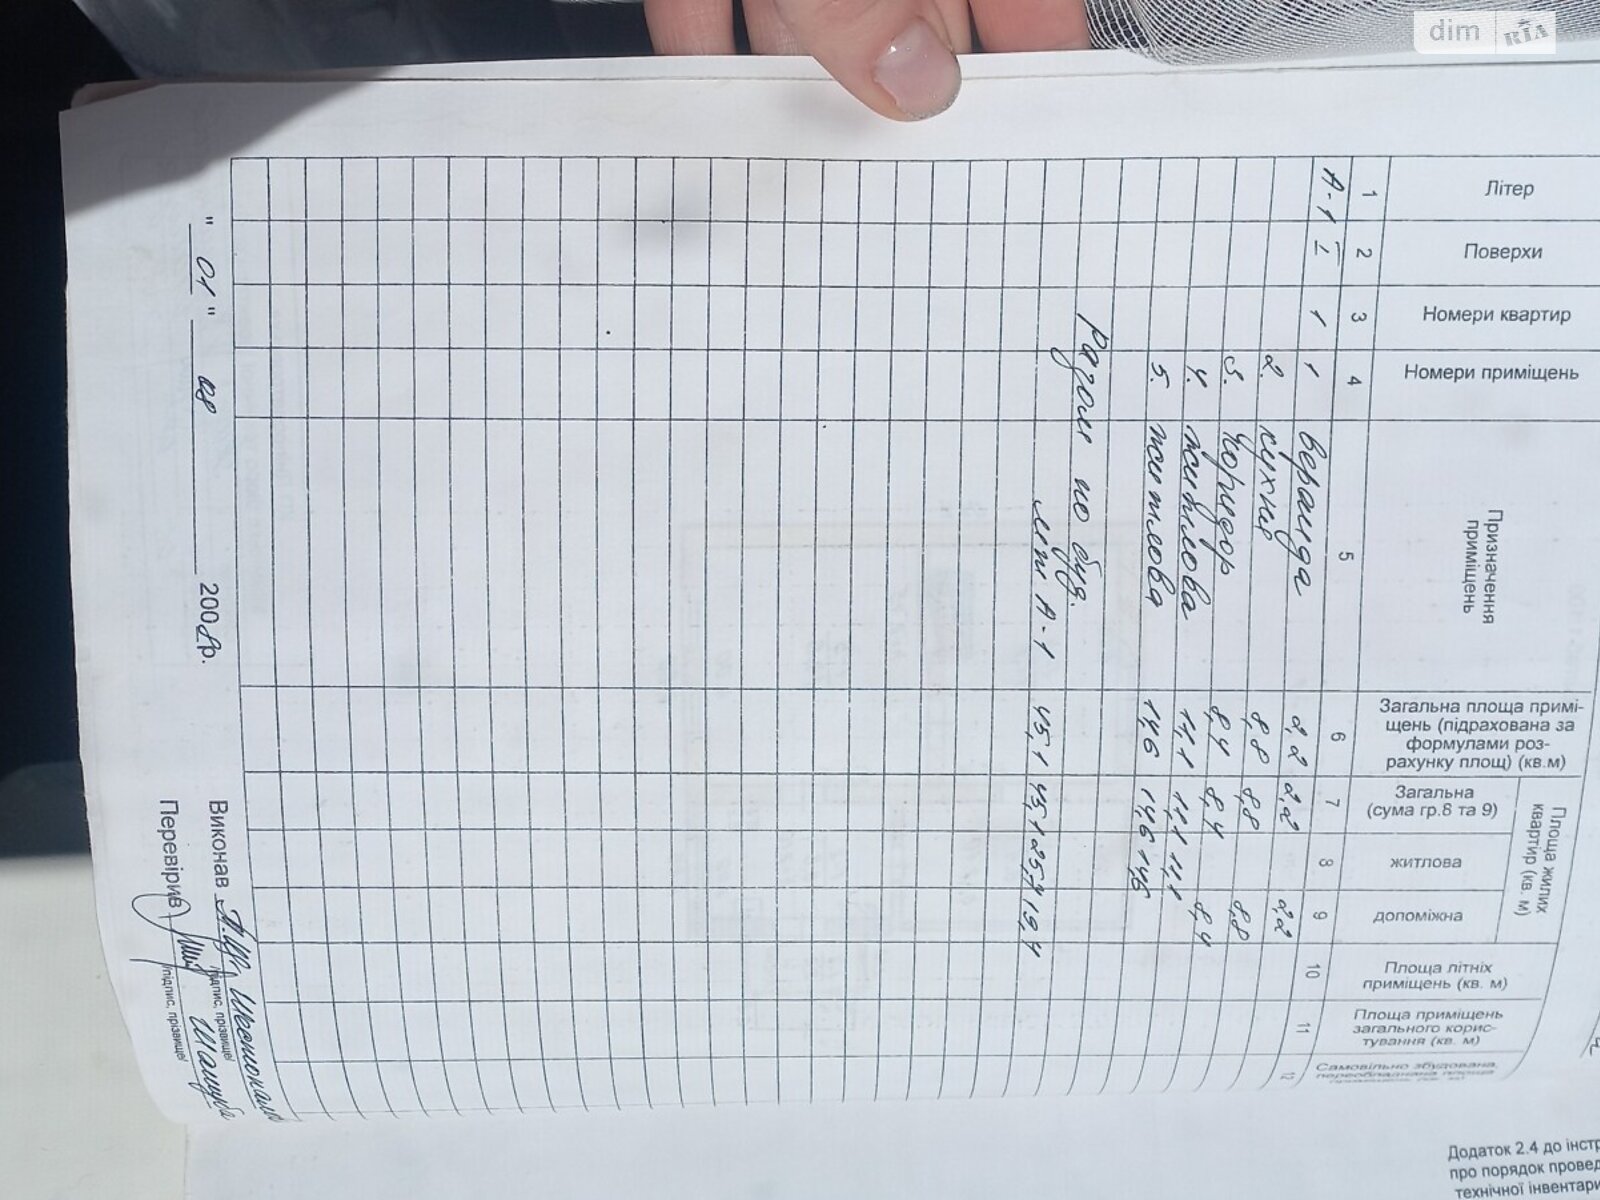 dim RIA
Додаток 2.4 до інстр
про порядок провед
технічної інвентари
Літер
Поверхи
Номери квартир
Номери приміщень
Призначення приміщень
Загальна площа примі-
щень (підрахована за
формулами роз-
рахунку площ) (кв.м)
Площа жилих
квартир (кв. м)
Загальна
(сума гр.8 та 9)
житлова
допоміжна
Площа літніх
приміщень (кв. м)
Площа приміщень
загального корис-
тування (кв. м)
Самовільно збудована,
переобладнана площа
1 2 3 4 5 6 7 8 9 10 11 12
А-1 I 1 1 веранда 2,2 2,2 2,2
2. кухня 8,8 8,8 8,8
3. коридор 8,4 8,4 8,4
4. житлова 11,1 11,1 11,1
5. житлова 14,6 14,6 14,6
Разом по буд.
літ А-1 45,1 45,1 25,7 19,4
" 01 " 08 2008р.
Виконав
/підпис, прізвище/
Перевірив
/підпис, прізвище/